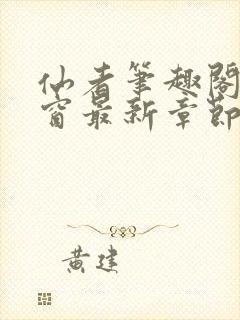 仙者笔趣阁
窗最新章节
黄建